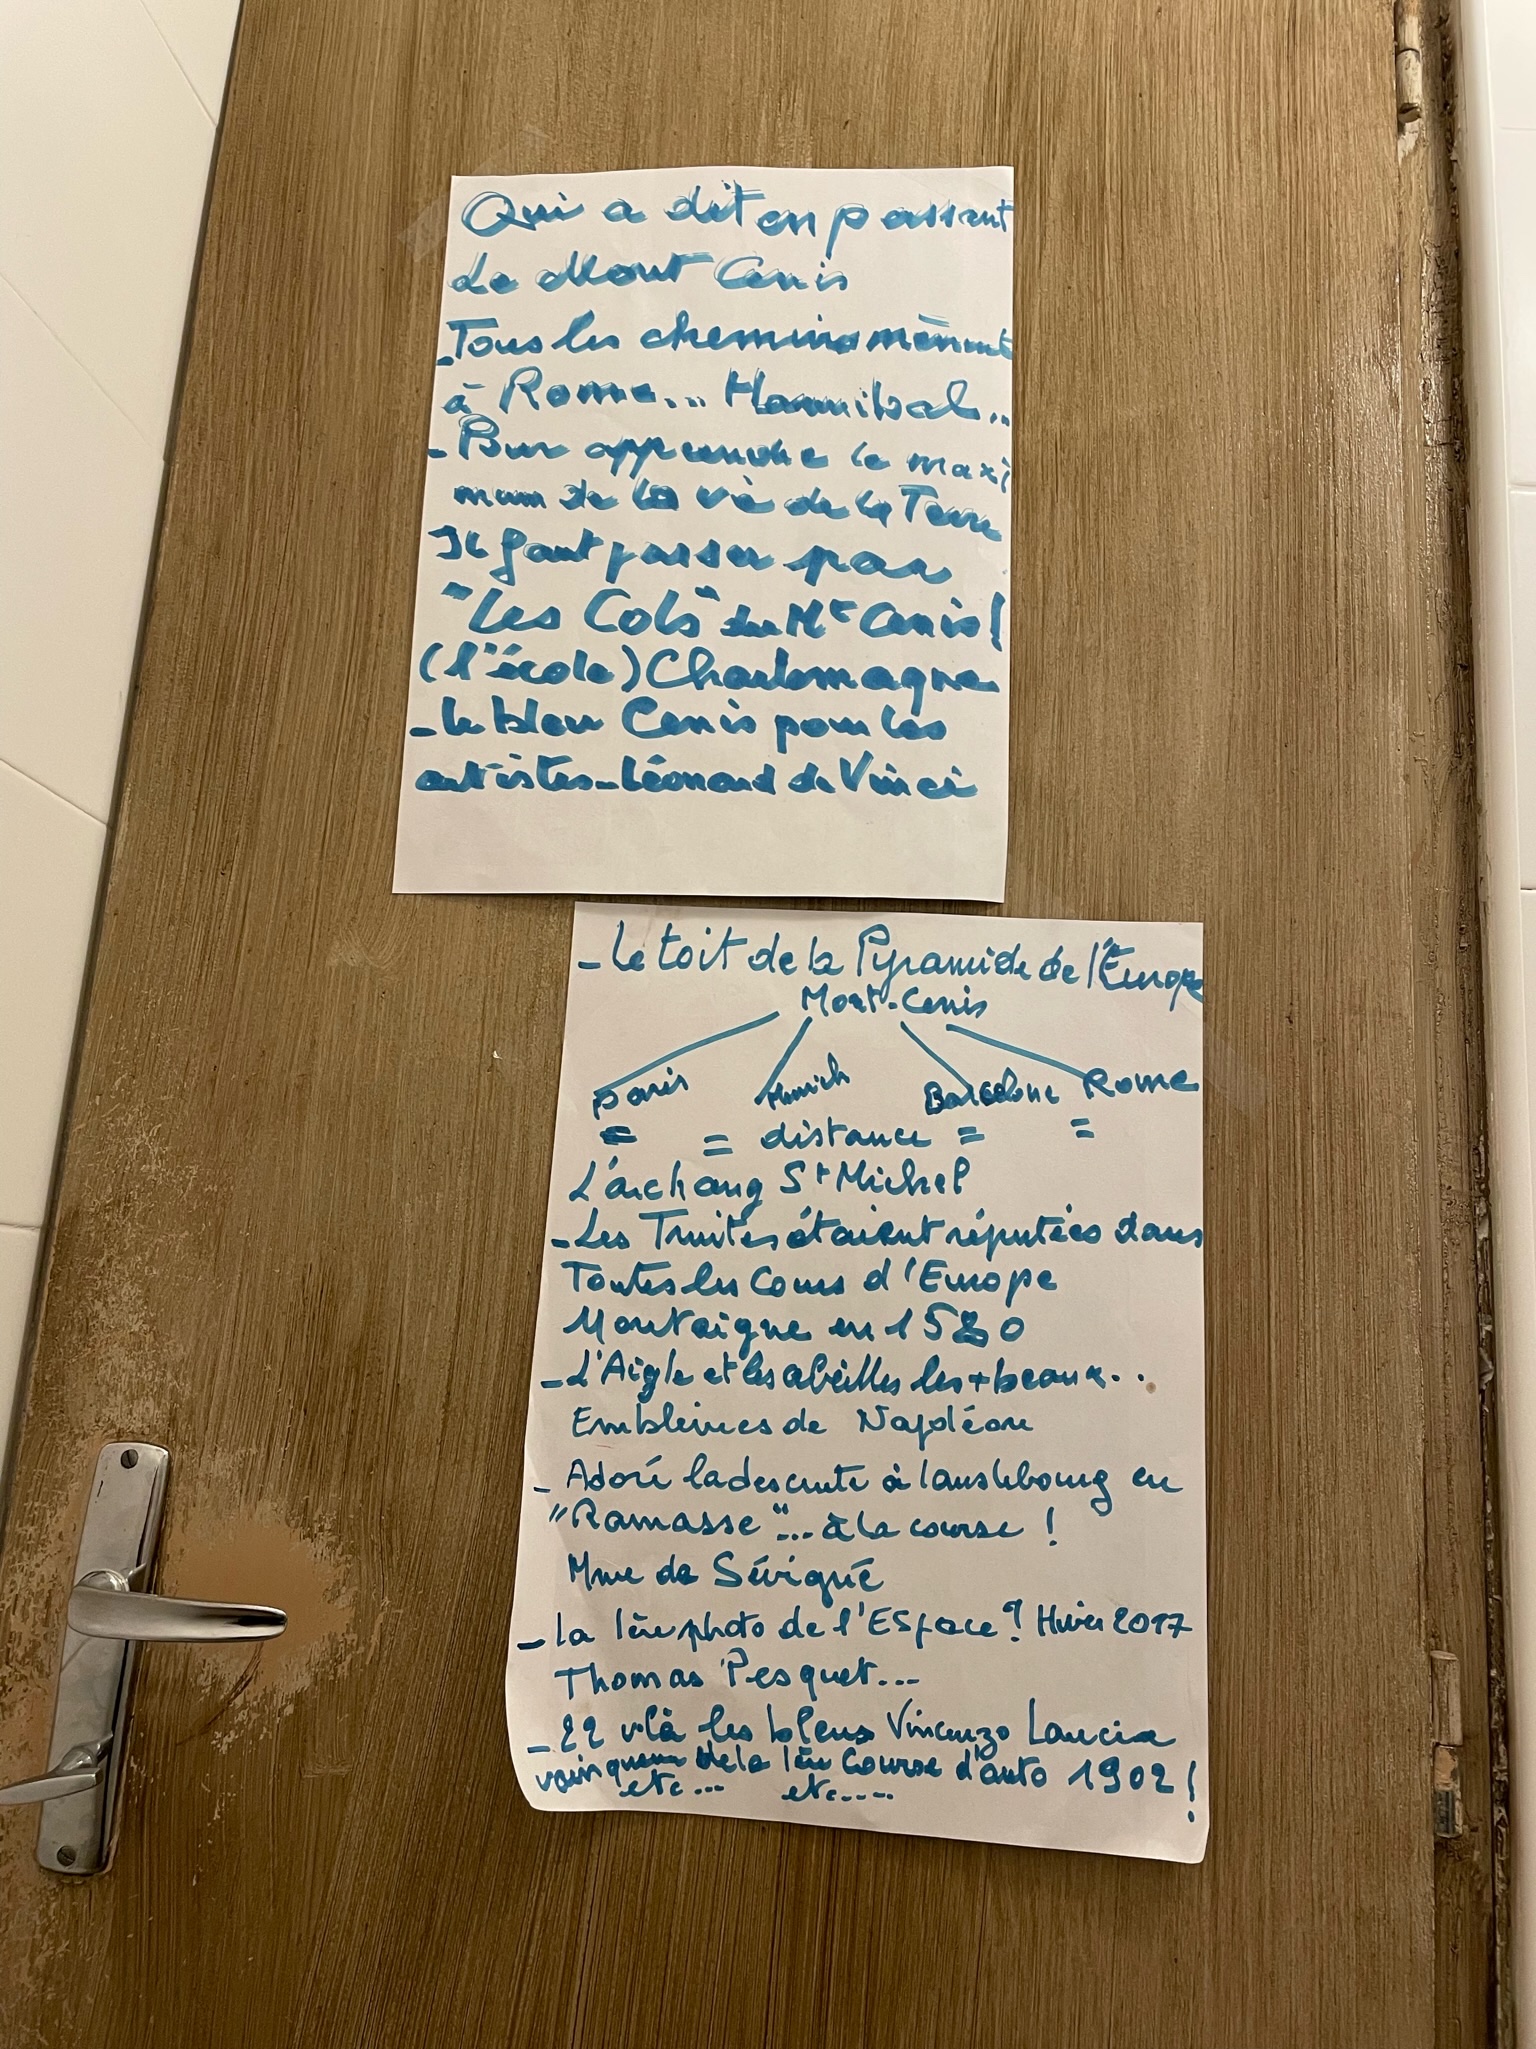 Qui a dit en passant
Le Mont Cenis
- Tous les chemins mènent
à Rome... Hannibal...
- Pour apprendre le maxi
mum de la vie de la Terre
Il faut passer par
"Les Cols" du Mt Cenis !
(l'école) Charlemagne
- le bleu Cenis pour les
artistes - Léonard de Vinci
- Le toit de la Pyramide de l'Europe
Mont-Cenis
Paris Munich Barcelone Rome
= = distance = =
L'archang St Michel
- Les Truites étaient réputées dans
Toutes les Cours d'Europe
Montaigne en 1580
- L'Aigle et les abeilles les + beaux...
Emblèmes de Napoléon
- Adoré la descente à Lanslebourg en
"Ramasse"... à la course !
Mme de Sévigné
- La 1ère photo de l'Espace ? Hiver 2017
Thomas Pesquet...
- 22 v'là les bleus Vincenzo Lancia
vainqueur de la 1ère Course d'auto 1902 !
etc... etc.....